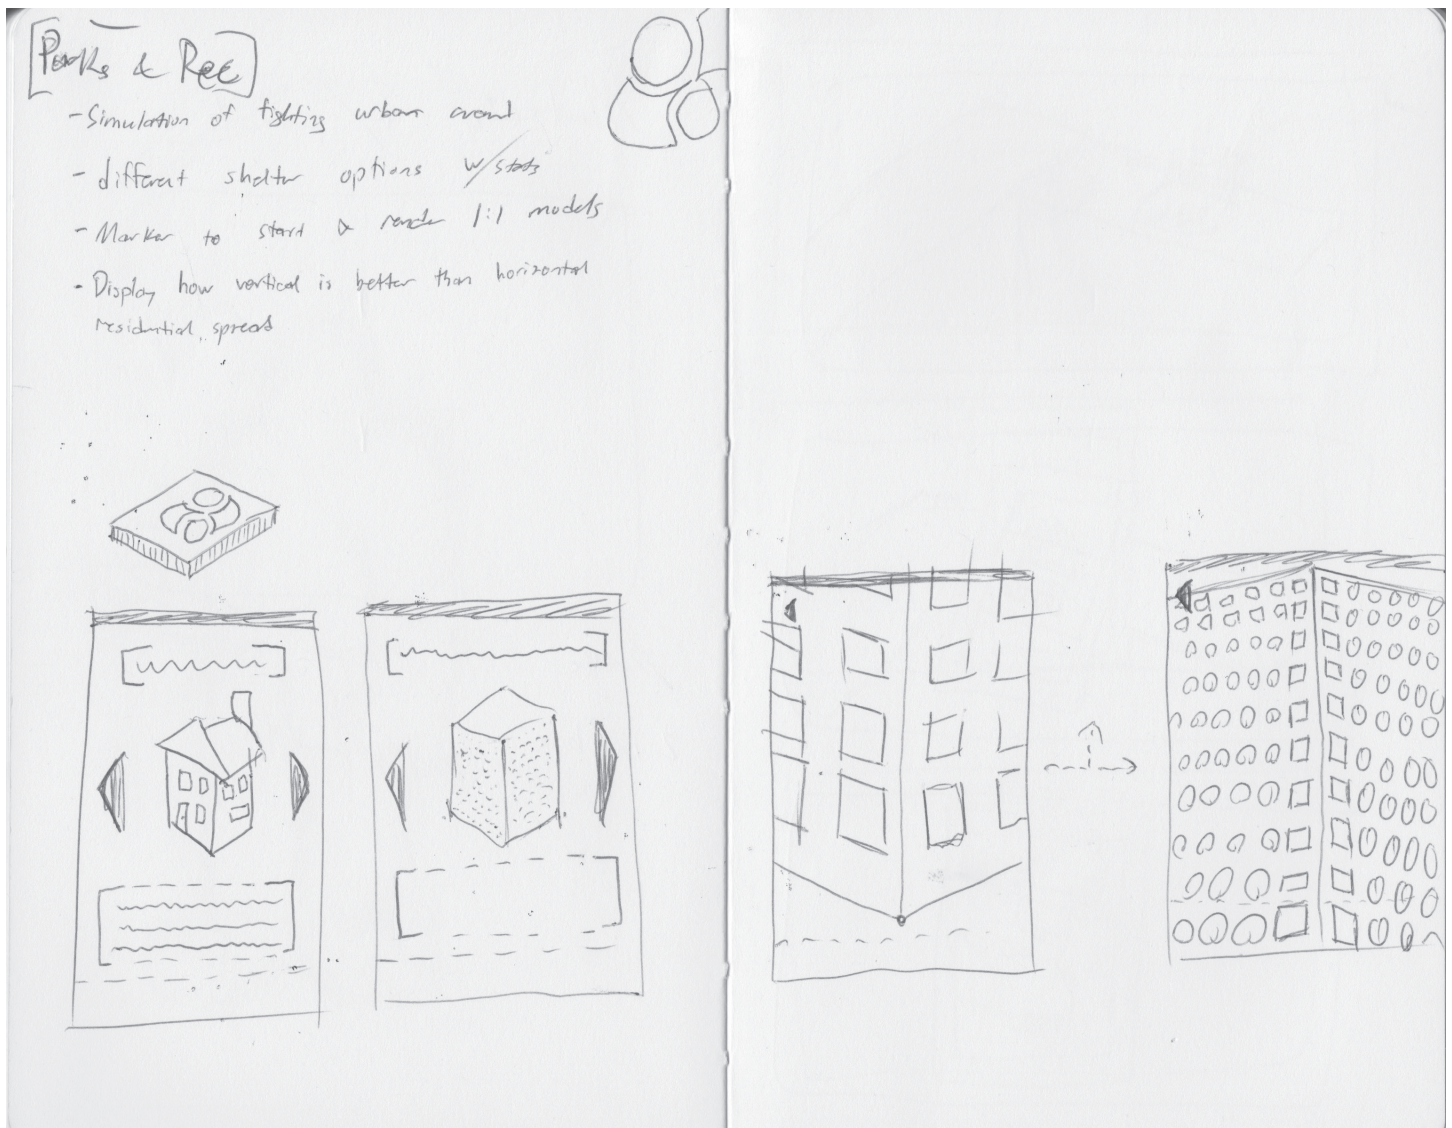 Parks & Rec
- Simulation of fighting urban
- different shelter options w/stats
- Marker to start & render 1:1 models
- Display how vertical is better than horizontal
residential spread